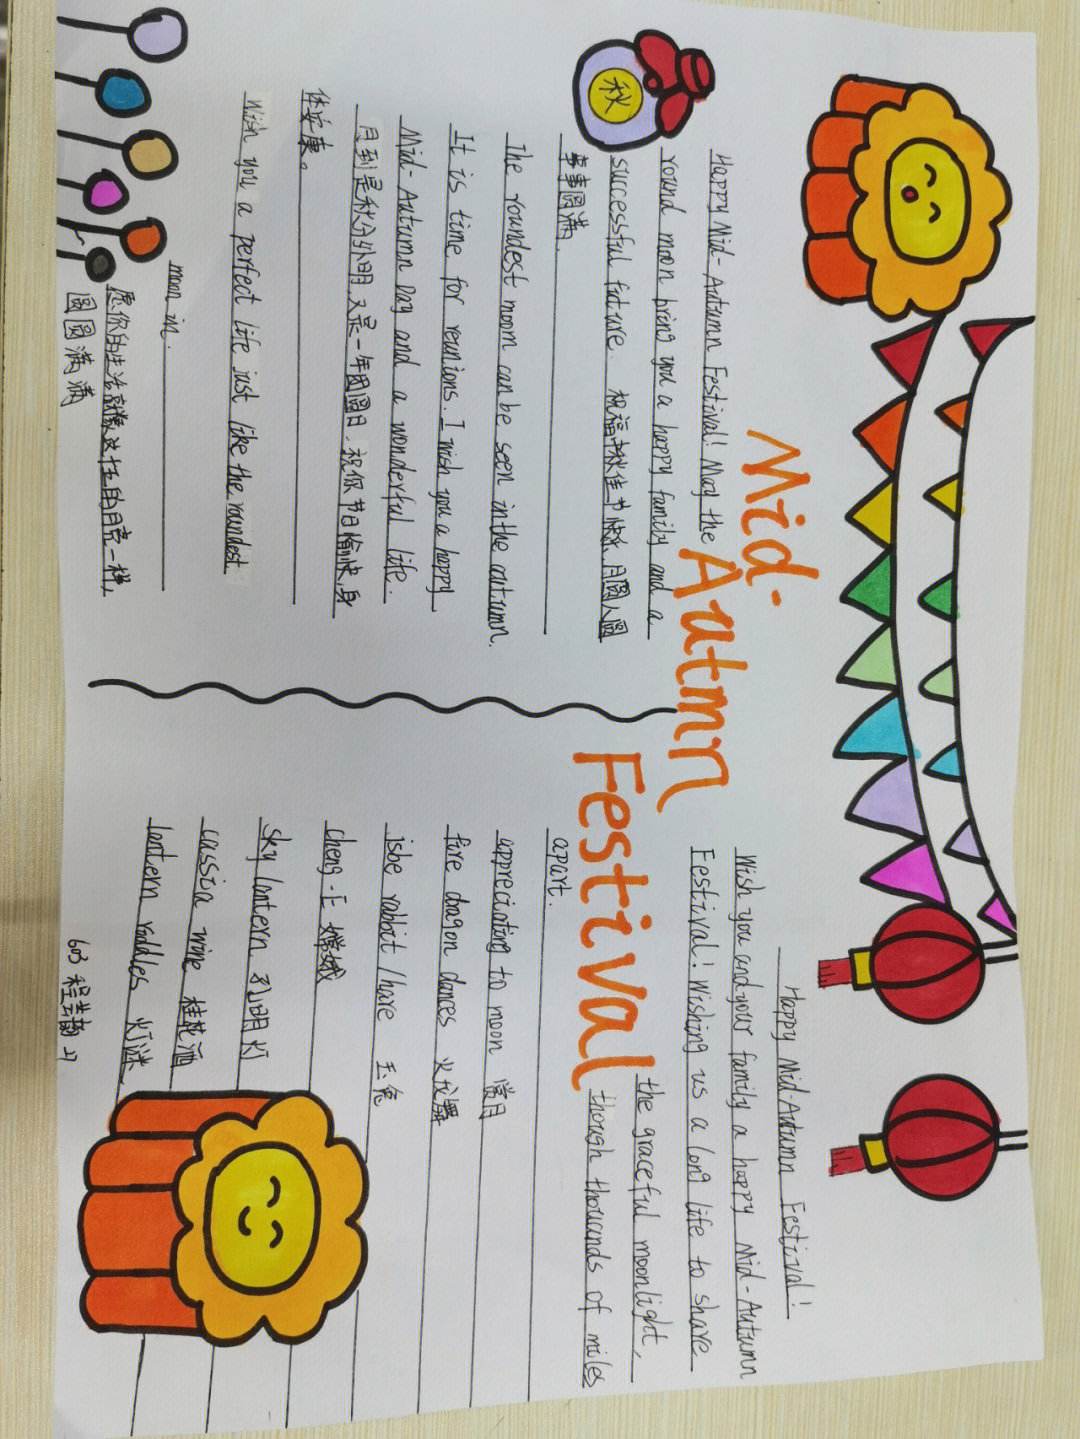 秋
Mid-
Autmn
Festival
Happy Mid-Autumn Festival! May the
round moon bring you a happy family and a
successful future. 祝福中秋佳节快乐 月圆人圆
事事圆满.
The roundest moon can be seen in the autumn.
It is time for reunions. I wish you a happy
Mid-Autumn Day and a wonderful life.
月到是秋分外明,又是一年团圆日.祝你节日愉快,身
体安康。
Wish you a perfect life just like the roundest
moon in.
愿你的生活就像这十五的月亮一样,
圆圆满满
Happy Mid-Autumn Festival!
Wish you and your family a happy Mid-Autumn
Festival! Wishing us a long life to share
the graceful moonlight,
though thousands of miles
apart.
appreciating to moon 赏月
fire dragon dances 火龙舞
jsbe rabbit/hare 玉兔
cheng-E 嫦娥
sky lantern 孔明灯
cassia wine 桂花酒
lantern raddles 灯谜
603 程芸韵 27